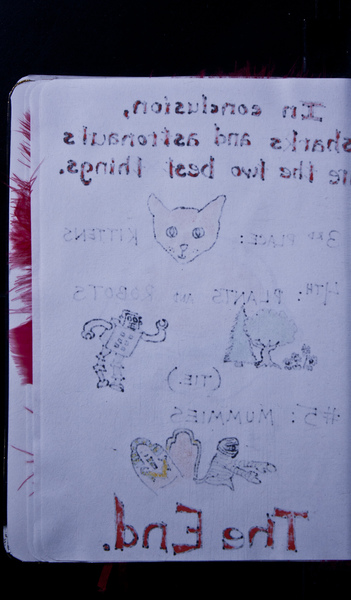 In conclusion,
sharks and astronauts
are the two best things.
3RD PLACE: KITTENS
4TH: PLANTS AND ROBOTS
(TIE.)
#5: MUMMIES
The End.